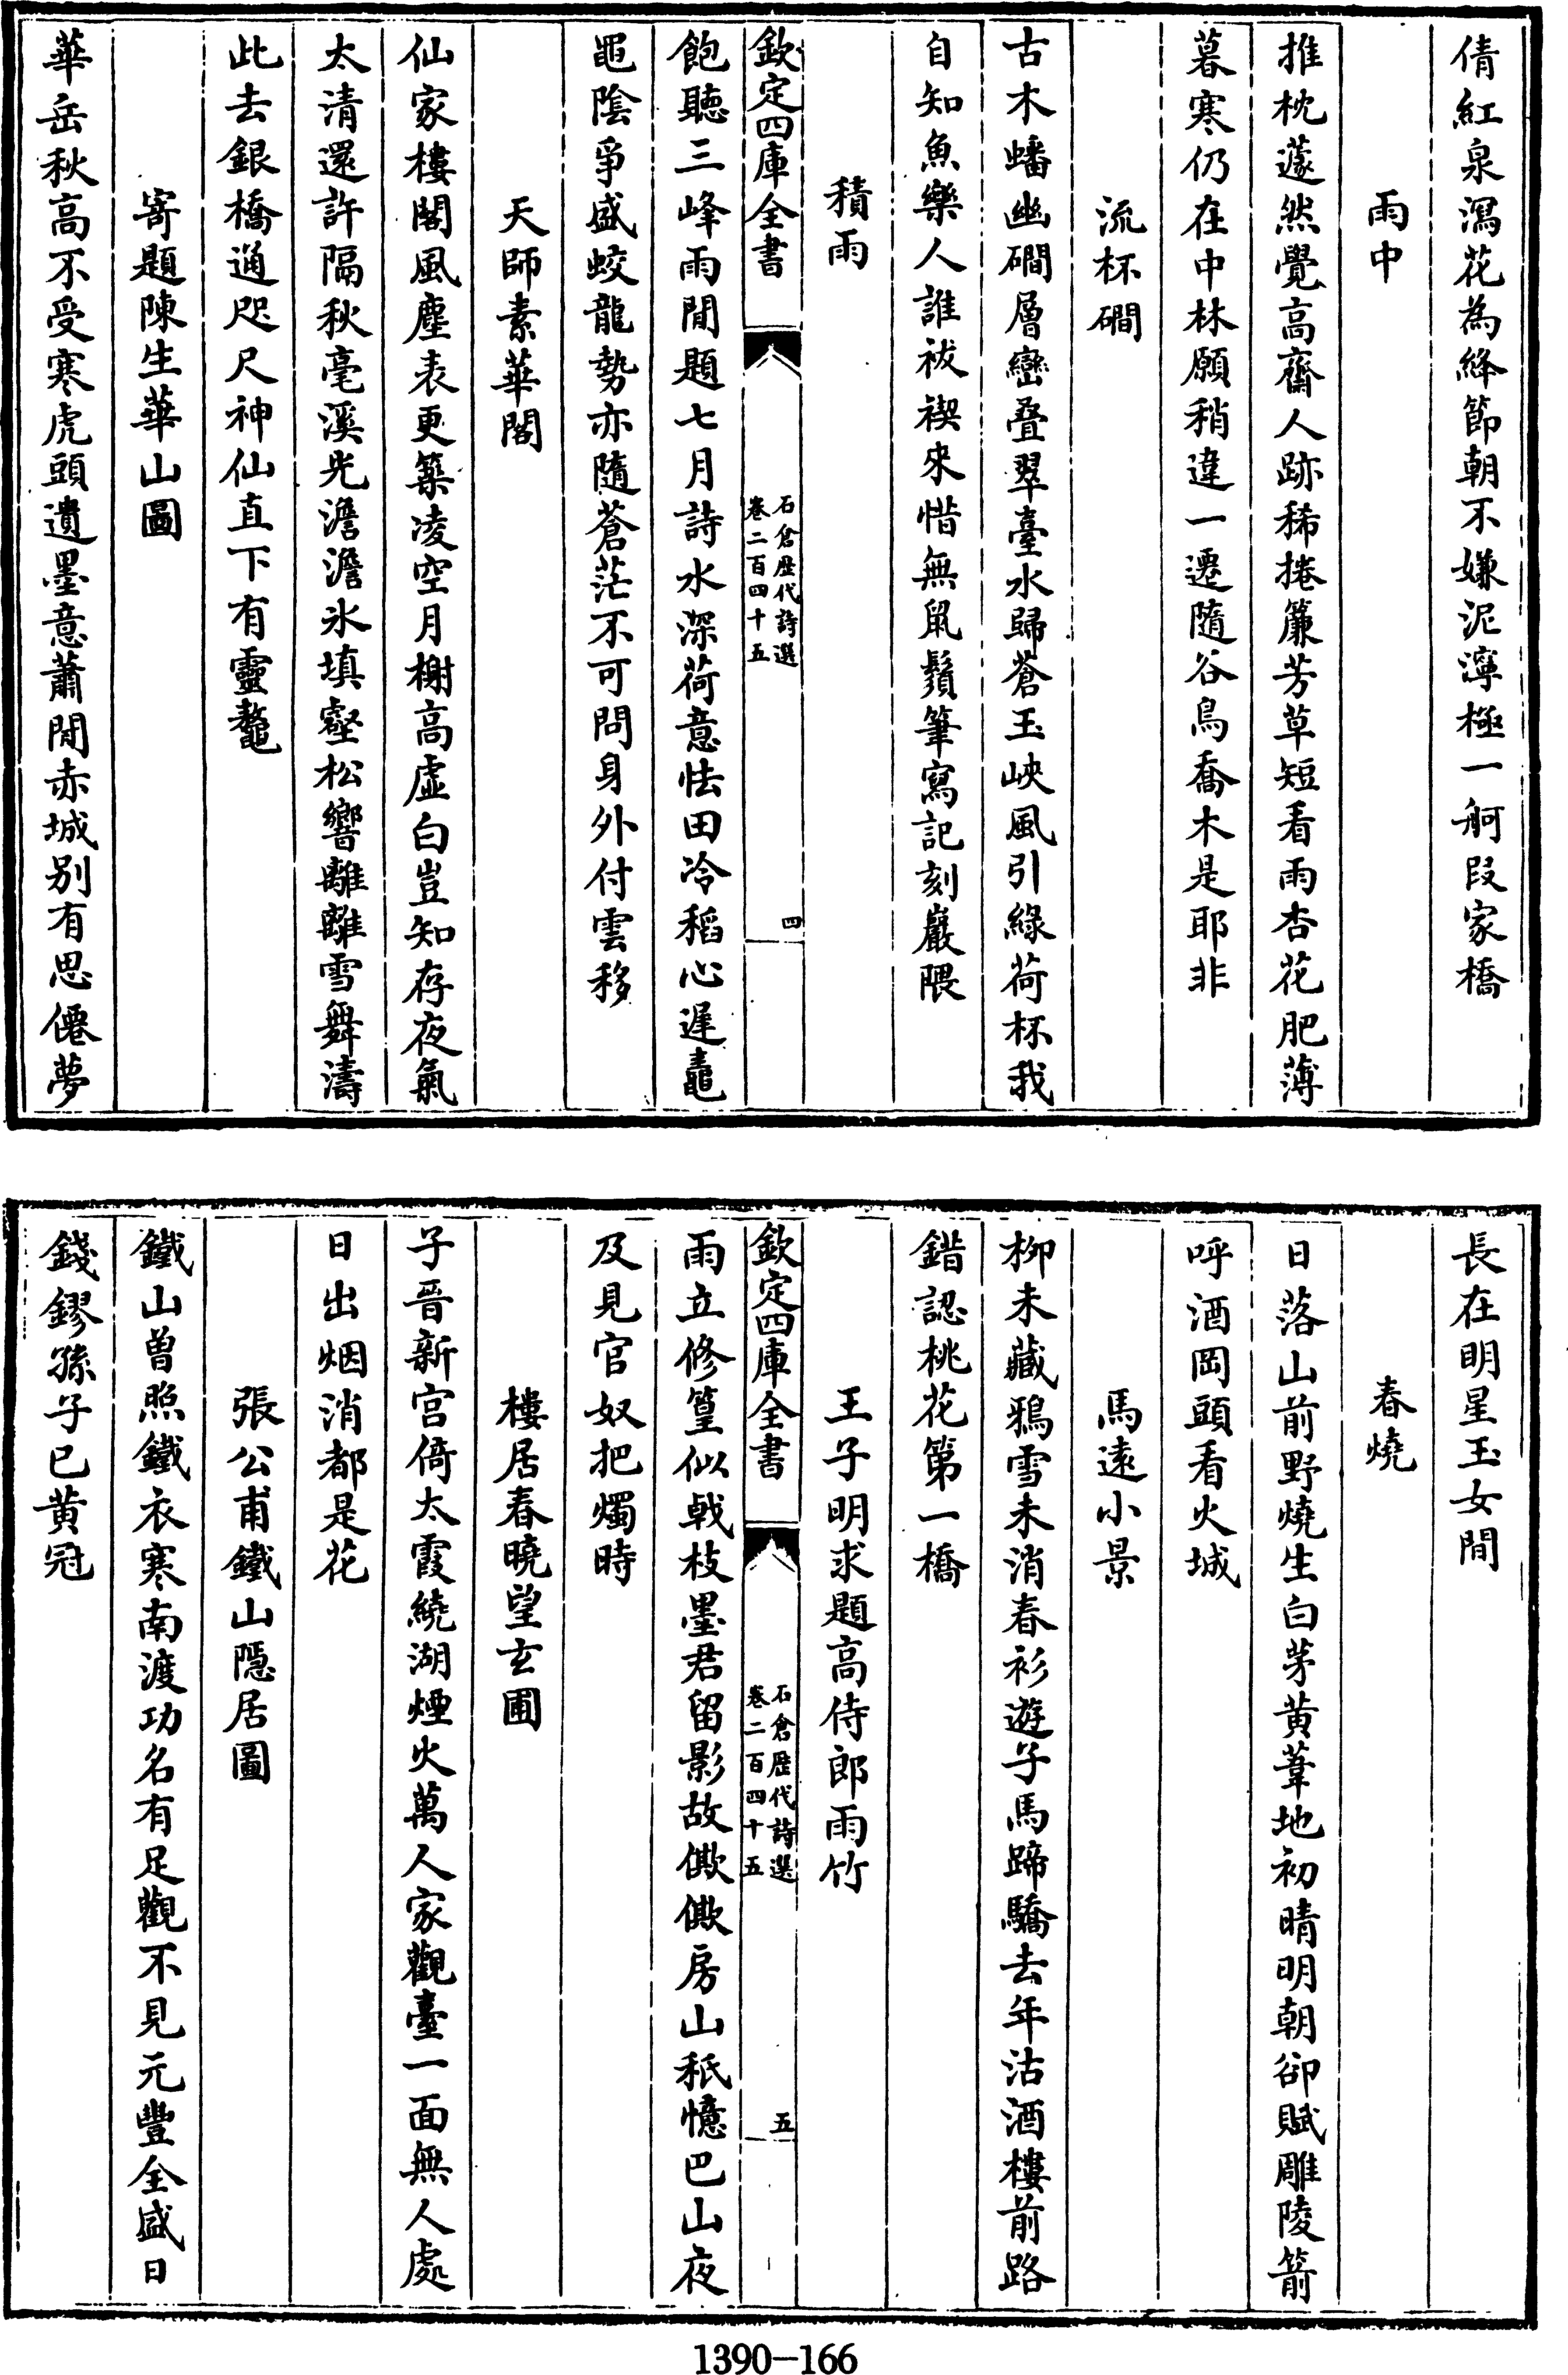 倩紅泉瀉花為絳節朝不嫌泥濘極一舸段家橋
雨中
推枕蘧然覺高齋人跡稀捲簾芳草短看雨杏花肥薄
暮寒仍在中林願稍違一遷隨谷鳥喬木是耶非
流杯磵
古木蟠幽磵層巒叠翠臺水歸蒼玉峽風引緑荷杯我
自知魚樂人誰祓禊來惜無鼠鬚筆寫記刻巖隈
積雨
欽定四庫全書
石倉歴代詩選
卷二百四十五
四
飽聽三峰雨閒題七月詩水深荷意怯田冷稻心遲鼃
黽陰爭盛蛟龍勢亦隨蒼茫不可問身外付雲移
天師素華閣
仙家樓閣風塵表更築凌空月榭高虛白豈知存夜氣
太清還許隔秋毫溪光澹澹氷填壑松響離離雪舞濤
此去銀橋通咫尺神仙直下有靈鼇
寄題陳生華山圖
華岳秋高不受寒虎頭遺墨意蕭閒赤城别有思僊夢
長在明星玉女間
春燒
日落山前野燒生白茅黄葦地初晴明朝卻賦雕陵箭
呼酒岡頭看火城
馬遠小景
柳未藏鴉雪未消春衫遊子馬蹄驕去年沽酒樓前路
錯認桃花第一橋
王子明求題高侍郎雨竹
欽定四庫全書
石倉歴代詩選
卷二百四十五
五
雨立修篁似㦸枝墨君留影故僛僛房山秖憶巴山夜
及見官奴把燭時
樓居春曉望玄圃
子晋新宫倚太霞繞湖煙火萬人家觀臺一面無人處
日出烟消都是花
張公甫鐵山隱居圖
鐵山曽照鐵衣寒南渡功名有足觀不見元豐全盛日
錢鏐孫子已黄冠
1390-166